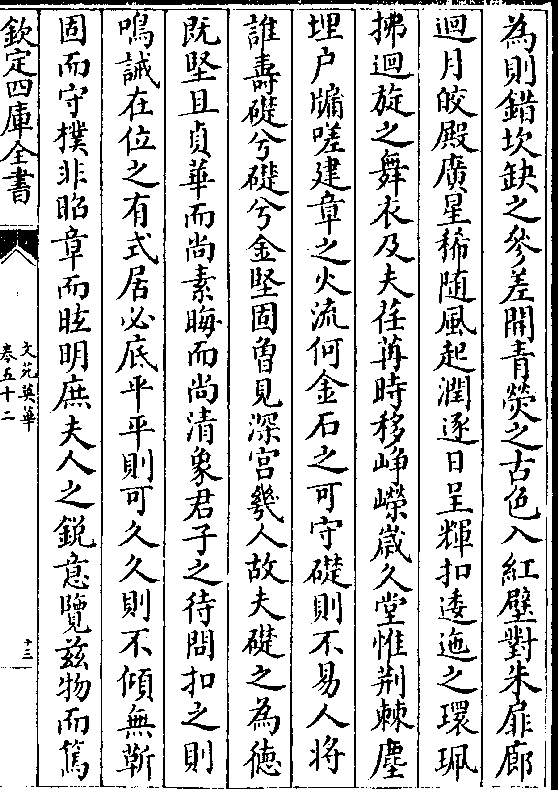 為則錯坎缺之參差開青熒之古色入紅壁對朱扉廊
迴月皎殿廣星稀随風起潤逐日呈輝扣逶迤之環珮
拂迴旋之舞衣及夫荏苒時移崢嶸嵗久堂惟荆棘塵
埋户牖嗟建章之火流何金石之可守礎則不易人將
誰壽礎兮礎兮金堅固曽見深宫幾人故夫礎之為徳
既堅且貞華而尚素晦而尚清象君子之待問扣之則
鳴誠在位之有式居必底平平則可久久則不傾無斵
固而守樸非昭章而眩明庶夫人之鋭意覽兹物而篤
欽定四庫全書
文苑英華
卷五十二
十三